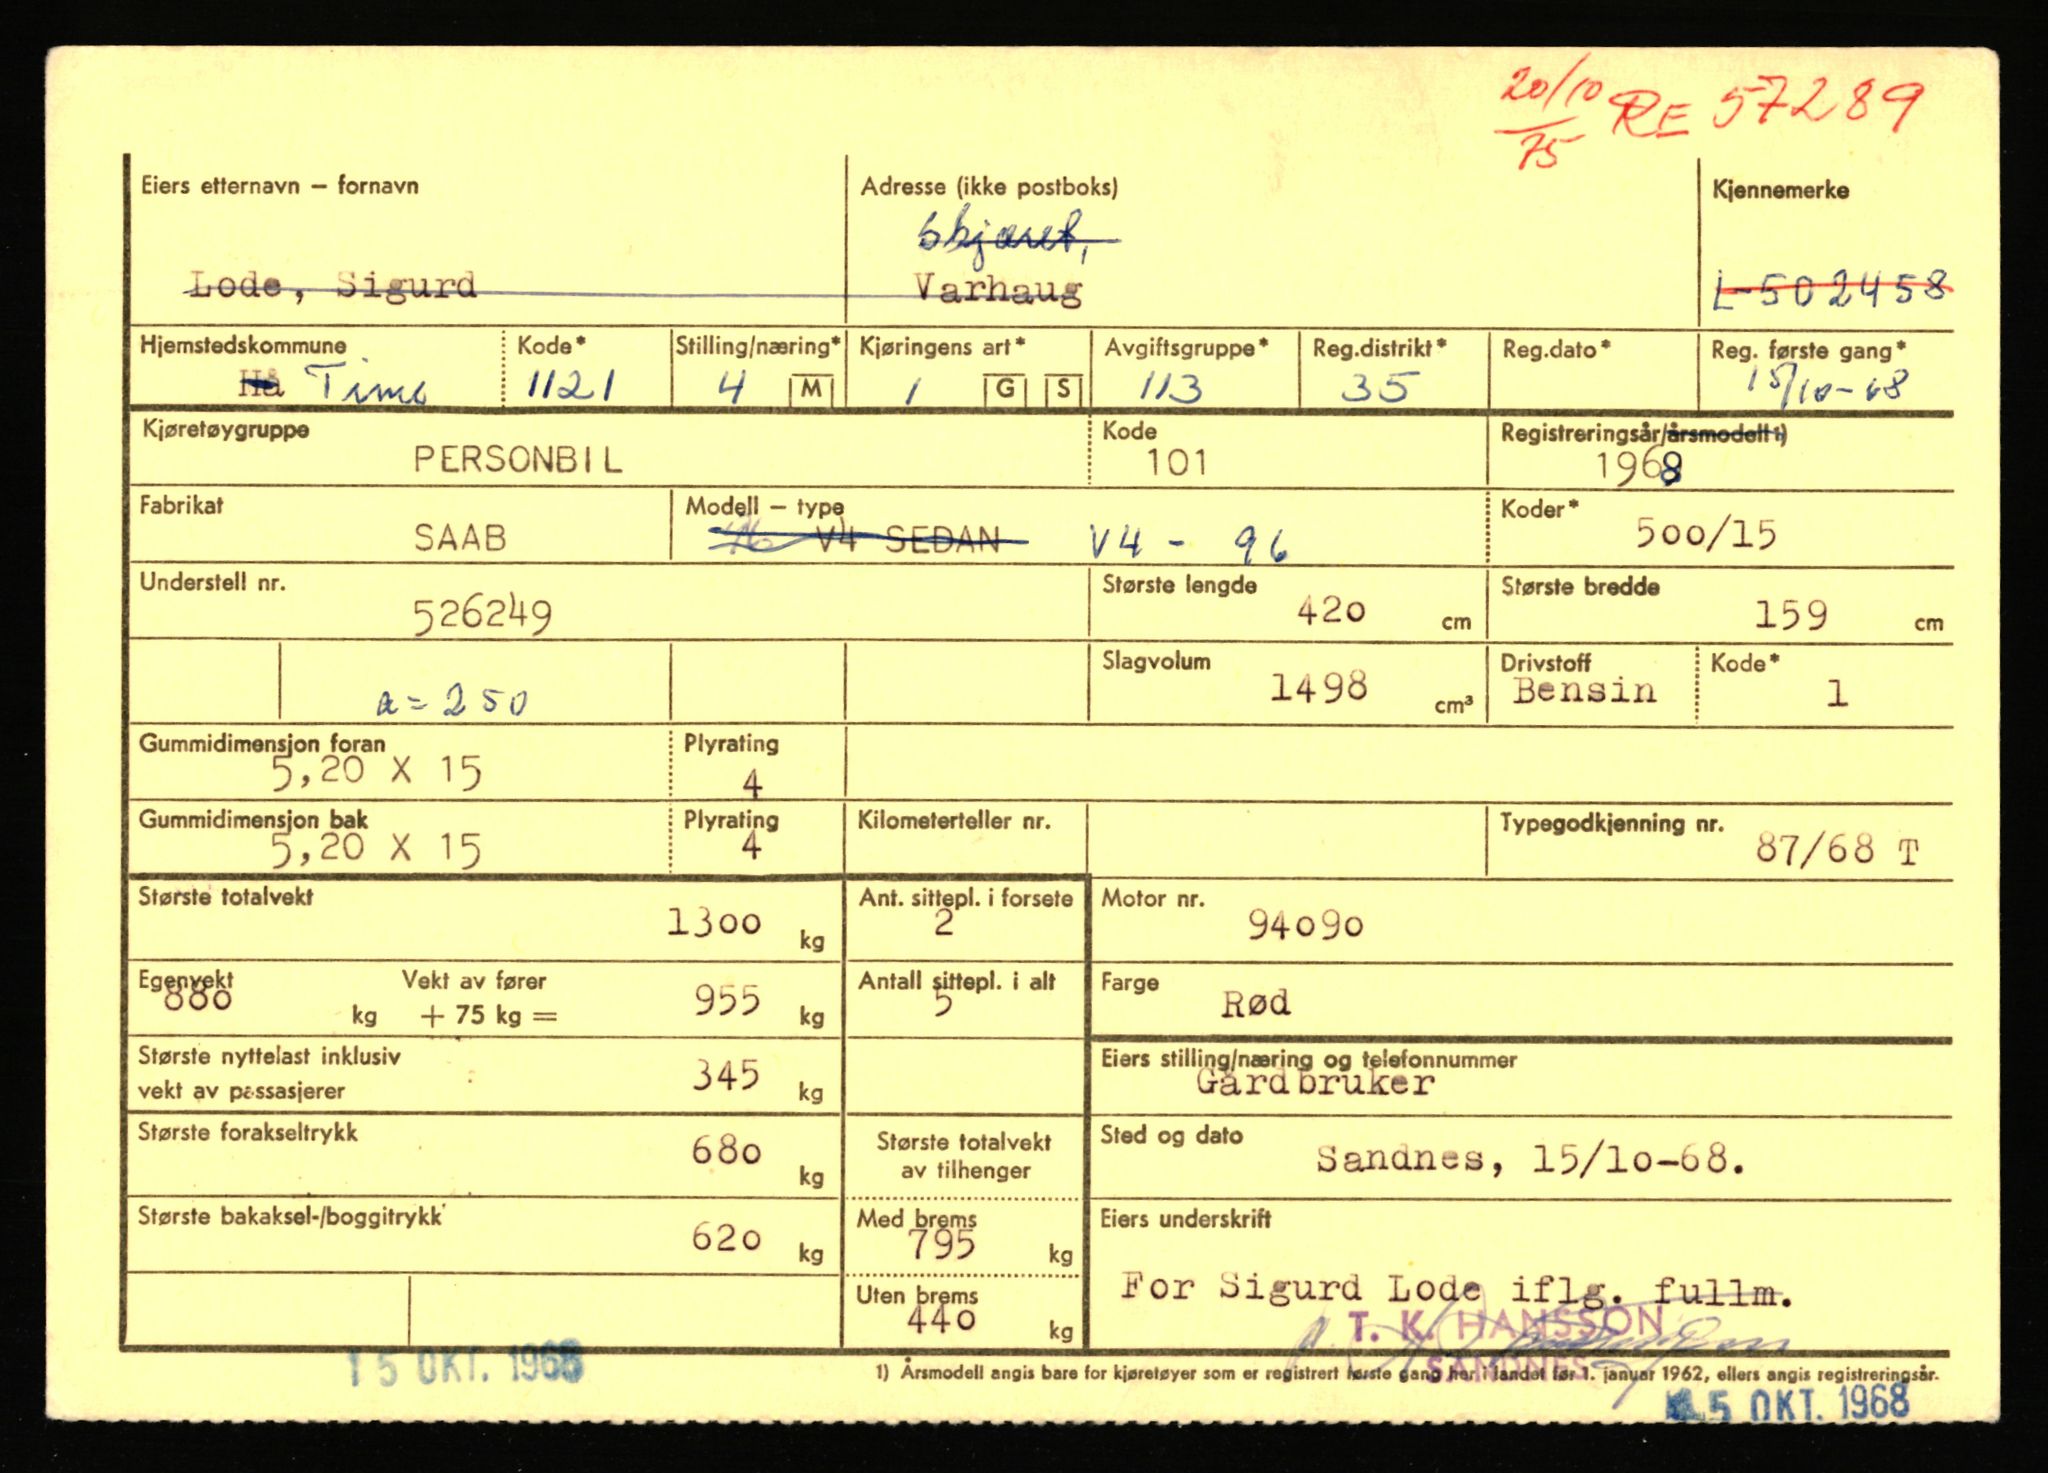 20/10 RE 57289
75
Eiers etternavn – fornavn Adresse (ikke postboks) Kjennemerke
Skjæret,
Lode, Sigurd Varhaug L-502458
Hjemstedskommune Kode* Stilling/næring* Kjøringens art* Avgiftsgruppe* Reg.distrikt* Reg.dato* Reg. første gang*
Hå Time 1121 4 M 1 G S 113 35 15/10-68
Kjøretøygruppe Kode Registreringsår/årsmodell 1)
PERSONBIL 101 1968
Fabrikat Modell – type Koder*
SAAB 96 V4 SEDAN V4 - 96 500/15
Understell nr. Største lengde Største bredde
526249 420 cm 159 cm
Slagvolum Drivstoff Kode*
a = 250 1498 cm³ Bensin 1
Gummidimensjon foran Plyrating
5,20 X 15 4
Gummidimensjon bak Plyrating Kilometerteller nr. Typegodkjenning nr.
5,20 X 15 4 87/68 T
Største totalvekt Ant. sittepl. i forsete Motor nr.
1300 kg 2 94090
Egenvekt Vekt av fører Antall sittepl. i alt Farge
880 kg + 75 kg = 955 kg 5 Rød
Største nyttelast inklusiv Eiers stilling/næring og telefonnummer
vekt av passasjerer 345 kg Gårdbruker
Største forakseltrykk Største totalvekt Sted og dato
680 kg av tilhenger Sandnes, 15/10-68.
Største bakaksel-/boggitrykk Med brems Eiers underskrift
620 kg 795 kg
Uten brems For Sigurd Lode iflg. fullm.
440 kg T. K. HANSSON
SANDNES
15 OKT. 1968 1) Årsmodell angis bare for kjøretøyer som er registrert første gang her i landet før 1. januar 1962, ellers angis registreringsår.
15 OKT. 1968